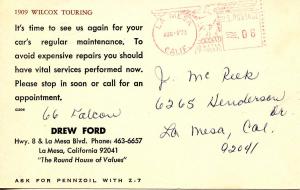 1909 WILCOX TOURING
It's time to see us again for your
car's regular maintenance. To
avoid expensive repairs you should
have vital services performed now.
Please stop in soon or call for an
appointment.
66 Falcon
DREW FORD
Hwy. 8 & La Mesa Blvd. Phone: 463-6657
La Mesa, California 92041
"The Round House of Values"
ASK FOR PENNZOIL WITH Z-7
LA MESA
CALIF.
U.S. POSTAGE
.06
J. Mc Reek
6265 Henderson
Dr.
La Mesa, Cal.
92041